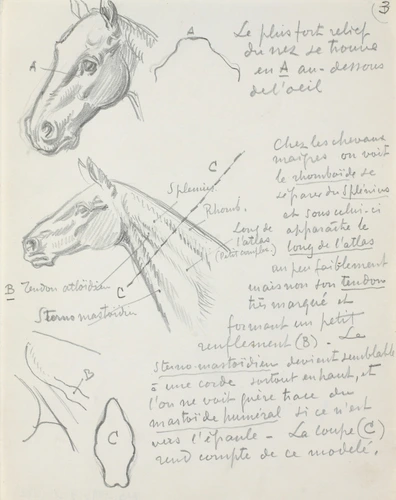 3
Le plus fort relief
du nez se trouve
en A au-dessous
de l'oeil
A
A
Chez les chevaux
maigres on voit
le rhomboïde se
séparer du Splénius
et sous celui-ci
apparaître le
long de l'atlas
un peu faiblement
mais non son tendon
très marqué et
formant un petit
renflement (B) - Le
Sterno-mastoïdien devient semblable
à une corde surtout en haut, et
l'on ne voit guère trace du
mastoïde huméral si ce n'est
vers l'épaule - La coupe (C)
rend compte de ce modelé.
C
Splenius
Rhomb.
Long de
l'atlas
(Petit complex.)
B Tendon atloïdien
C
Sterno mastoïdien
B
C